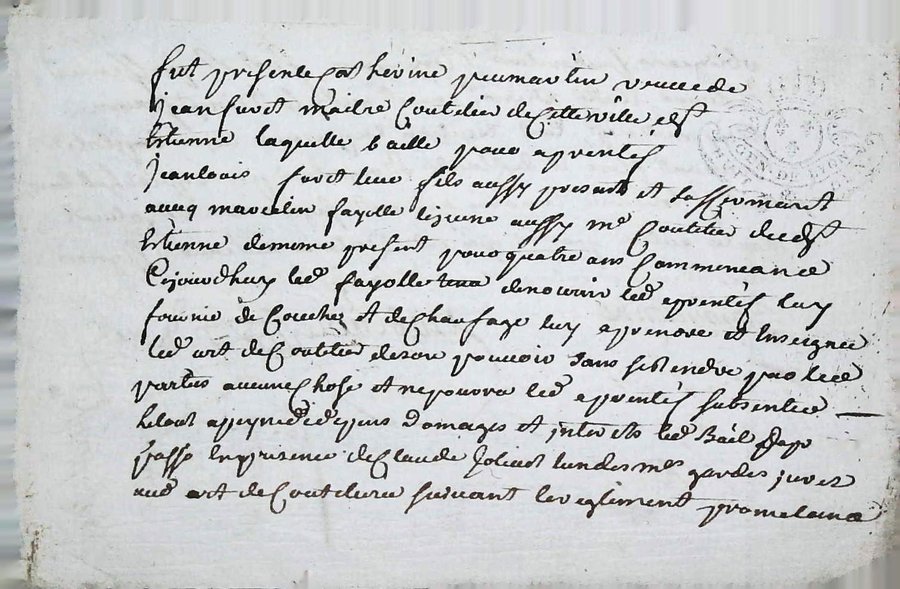 fut presente Catherine peumartin veuve de
jean furet maitre Coutelier de Cette ville de St
Etienne laquelle baille pour aprentif
jean louis furet leur fils aussy present et saffermant
avecq marcelin fayolle lejeune aussy me Coutelier dud St
Etienne dememe present pour quatre ans Commencance
Cejourdhuy led fayolle tenu denourir led aprentif luy
fournir de Couche et de Chaufage luy aprendre et Enseigner
led art de Coutelier deson pouvoir sans pretendre par lesd
parties aucune Chose et ne pourra led aprentif sabsenter
depens domages et interets led Bail
passe En presence de Claude lun des mes gardes jurez
aud art de Coutelerie suivant le reglement promettant